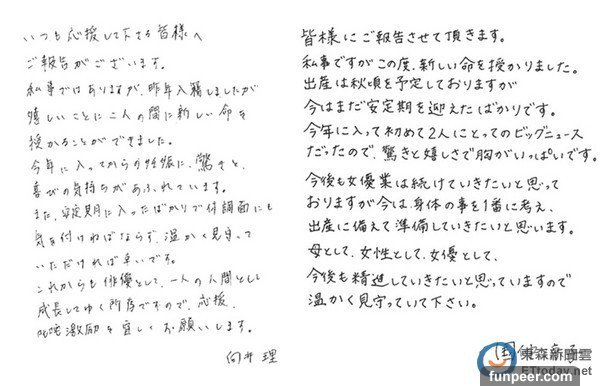 いつも応援して下さる皆様へ
ご報告がございます。
私事ではありますが、昨年入籍しましたが
嬉しいことに二人の間に新しい命を
授かることができました。
今年に入ってからの妊娠に、驚きと、
喜びの気持ちがあふれています。
また、安定期に入ったばかりで体調面にも
気を付けねばならず、温かく見守って
いただければ幸いです。
これからも俳優として、一人の人間として
成長してゆく所存ですので、応援、
叱咤激励を宜しくお願いします。
向井 理
皆様にご報告させて頂きます。
私事ですがこの度、新しい命を授かりました。
出産は秋頃を予定しておりますが
今はまだ安定期を迎えたばかりです。
今年に入って初めて2人にとってのビッグニュース
だったので、驚きと嬉しさで胸がいっぱいです。
今後も女優業は続けていきたいと思って
おりますが今は、身体の事を1番に考え、
出産に備えて準備していきたいと思います。
母として、女性として、女優として、
今後も精進していきたいと思っていますので
温かく見守っていて下さい。
国
東森新聞雲
ETtoday.net
funpeer.com